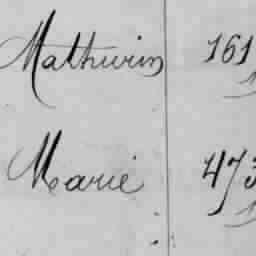 Mathurin 161
Marie 473